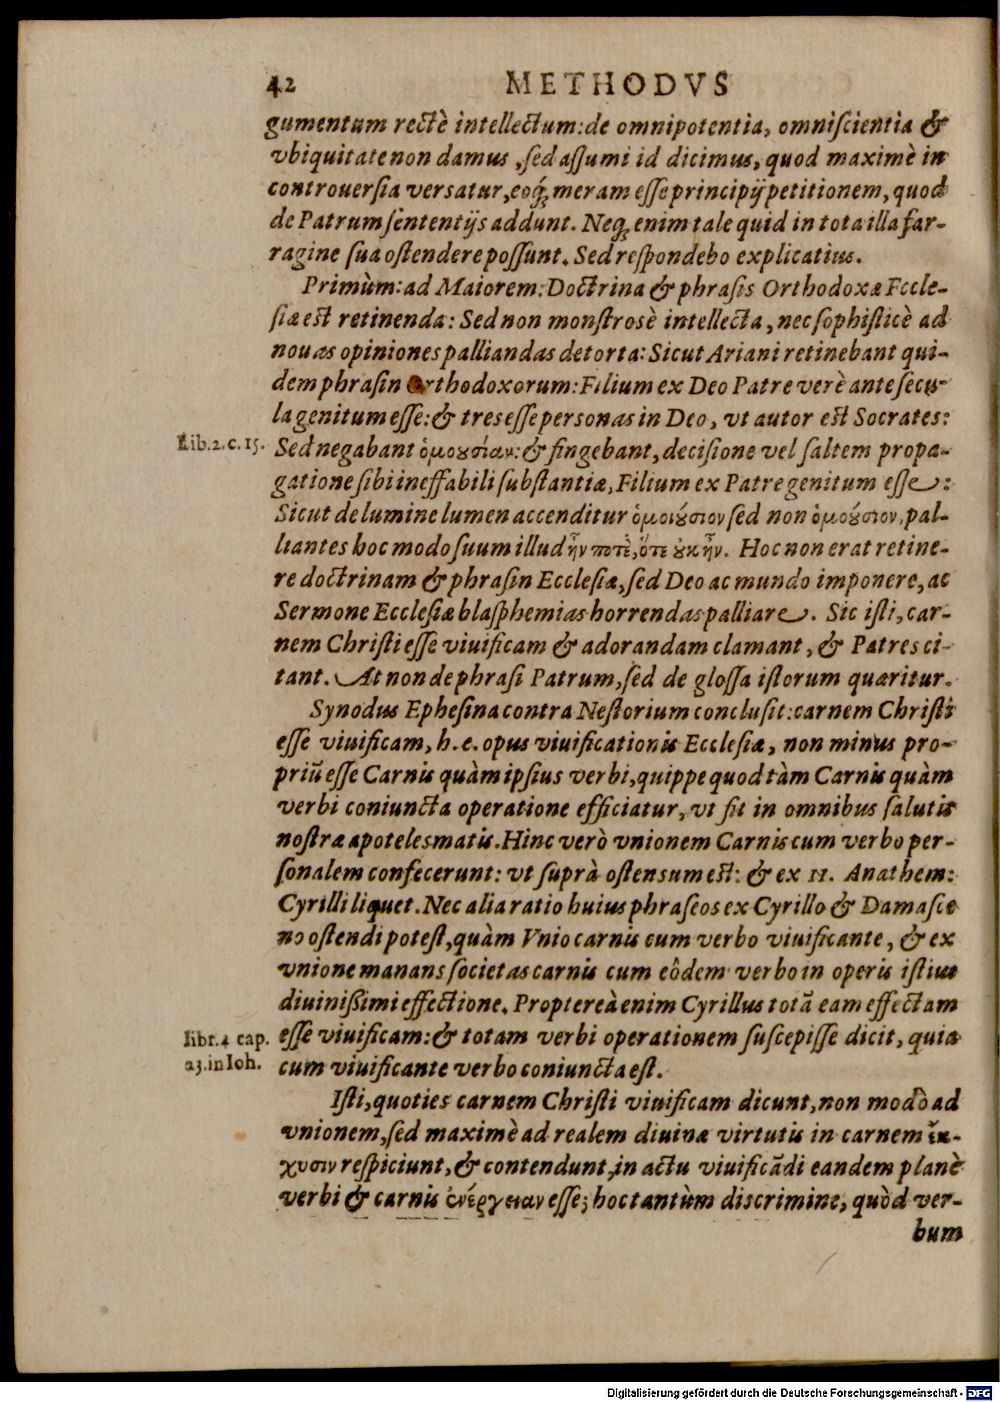 42 METHODVS
gumentum rectè intellectum: de omnipotentia, omniscientia &
vbiquitate non damus, sed assumi id dicimus, quod maximè in
controuersia versatur, eoq́; meram esse principij petitionem, quod
de Patrum sententijs addunt. Neq; enim tale quid in tota illa far-
ragine sua ostendere possunt. Sed respondebo explicatius.
Primùm: ad Maiorem: Doctrina & phrasis Orthodoxæ Eccle-
siæ est retinenda: Sed non monstrosè intellecta, nec sophisticè ad
nouas opiniones palliandas detorta: Sicut Ariani retinebant qui-
dem phrasin Orthodoxorum: Filium ex Deo Patre verè ante secu-
la genitum esse: & tres esse personas in Deo, vt autor est Socrates:
Lib. 2. c. 15.
Sed negabant ὁμουσίαν: & fingebant, decisione vel saltem propa-
gatione sibi ineffabili substantiæ, Filium ex Patre genitum esse:
Sicut de lumine lumen accenditur ὁμοιούσιον sed non ὁμοούσιον, pal-
liantes hoc modo suum illud ἦν ποτὲ, ὅτε οὐκ ἦν. Hoc non erat retine-
re doctrinam & phrasin Ecclesiæ, sed Deo ac mundo imponere, ac
Sermone Ecclesiæ blasphemias horrendas palliare. Sic isti, car-
nem Christi esse viuificam & adorandam clamant, & Patres ci-
tant. At non de phrasi Patrum, sed de glossa istorum quæritur.
Synodus Ephesina contra Nestorium conclusit: carnem Christi
esse viuificam, h. e. opus viuificationis Ecclesiæ, non minus pro-
priũ esse Carnis quàm ipsius verbi, quippe quod tàm Carnis quàm
verbi coniuncta operatione efficiatur, vt fit in omnibus salutis
nostræ apotelesmatis. Hinc verò vnionem Carnis cum verbo per-
sonalem confecerunt: vt suprà ostensum est: & ex 11. Anathem:
Cyrilli liquet. Nec alia ratio huius phraseos ex Cyrillo & Damasce
no ostendi potest, quàm Vnio carnis cum verbo viuificante, & ex
vnione manans societas carnis cum eôdem verbo in operis istius
diuinißimi effectione. Proptereà enim Cyrillus totã eam effectam
libr. 4 cap.
23. in Ioh.
esse viuificam: & totam verbi operationem suscepisse dicit, quia
cum viuificante verbo coniuncta est.
Isti, quoties carnem Christi viuificam dicunt, non modò ad
vnionem, sed maximè ad realem diuinæ virtutis in carnem ἔκ-
χυσιν respiciunt, & contendunt, in actu viuificãdi eandem planè
verbi & carnis ἐνέργειαν esse; hoc tantùm discrimine, quòd ver-
bum
Digitalisierung gefördert durch die Deutsche Forschungsgemeinschaft - DFG